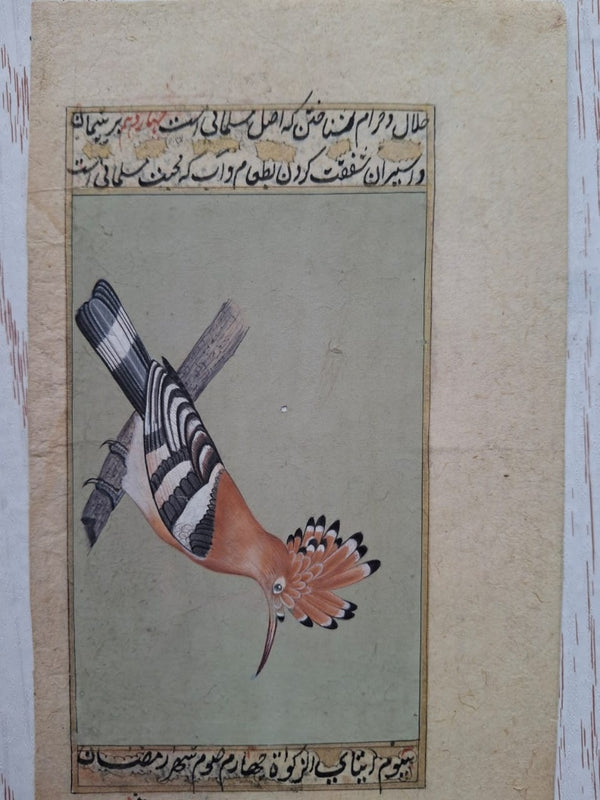 حلال و حرام شناختن که اصل مسلمانی است چهاردهم بر یتیمان
و اسیران شفقت کردن بطعام و آب که نصف مسلمانی است
سیوم ایتای الزکواة چهارم صوم شهر رمضان